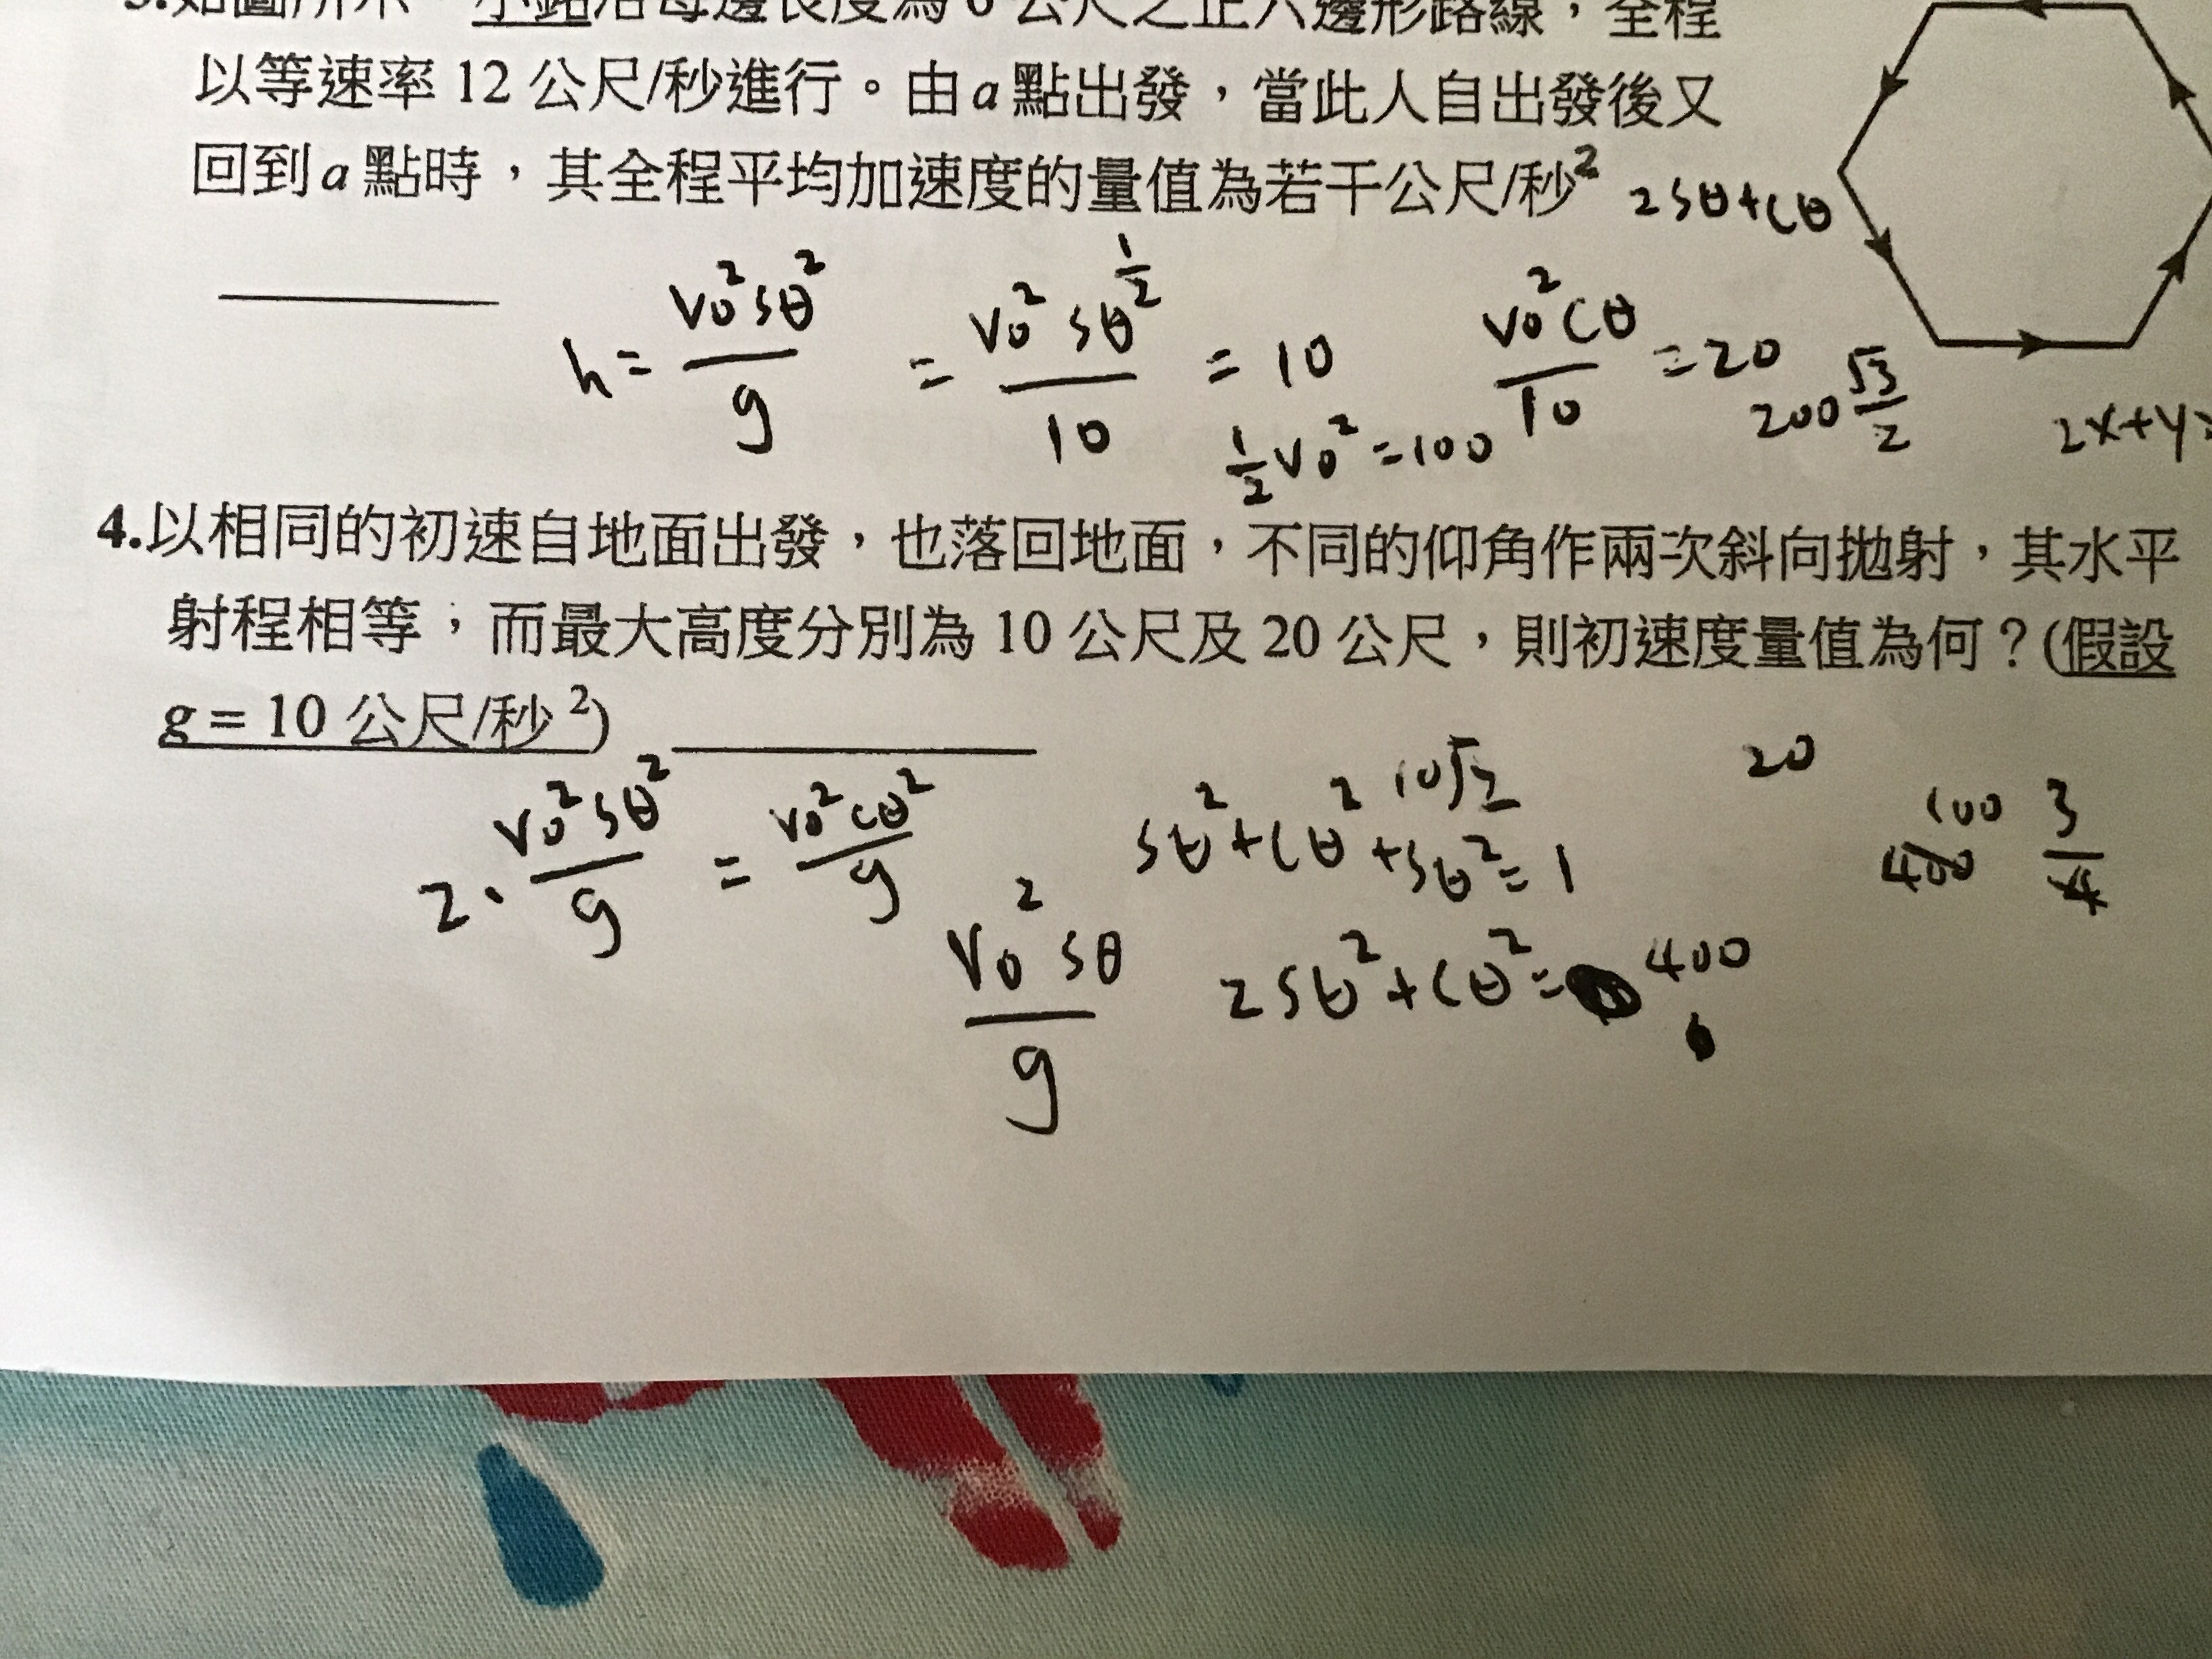 3.如圖所示，小銘沿每邊長度為 6 公尺之正六邊形路線，全程
以等速率 12 公尺/秒進行。由 a 點出發，當此人自出發後又
回到 a 點時，其全程平均加速度的量值為若干公尺/秒²
2sθ+cθ
h = v₀²sθ²/g = v₀²sθ^(1/2)/10 = 10
v₀²cθ/10 = 20
½v₀² = 100
200 √3/2
2x+y=
4.以相同的初速自地面出發，也落回地面，不同的仰角作兩次斜向拋射，其水平
射程相等，而最大高度分別為 10 公尺及 20 公尺，則初速度量值為何？(假設
g = 10 公尺/秒²)
2·v₀²sθ²/g = v₀²cθ²/g
sθ²+cθ²+sθ²=1
20
100 3
400 4
v₀²sθ/g
2sθ²+cθ²=
400